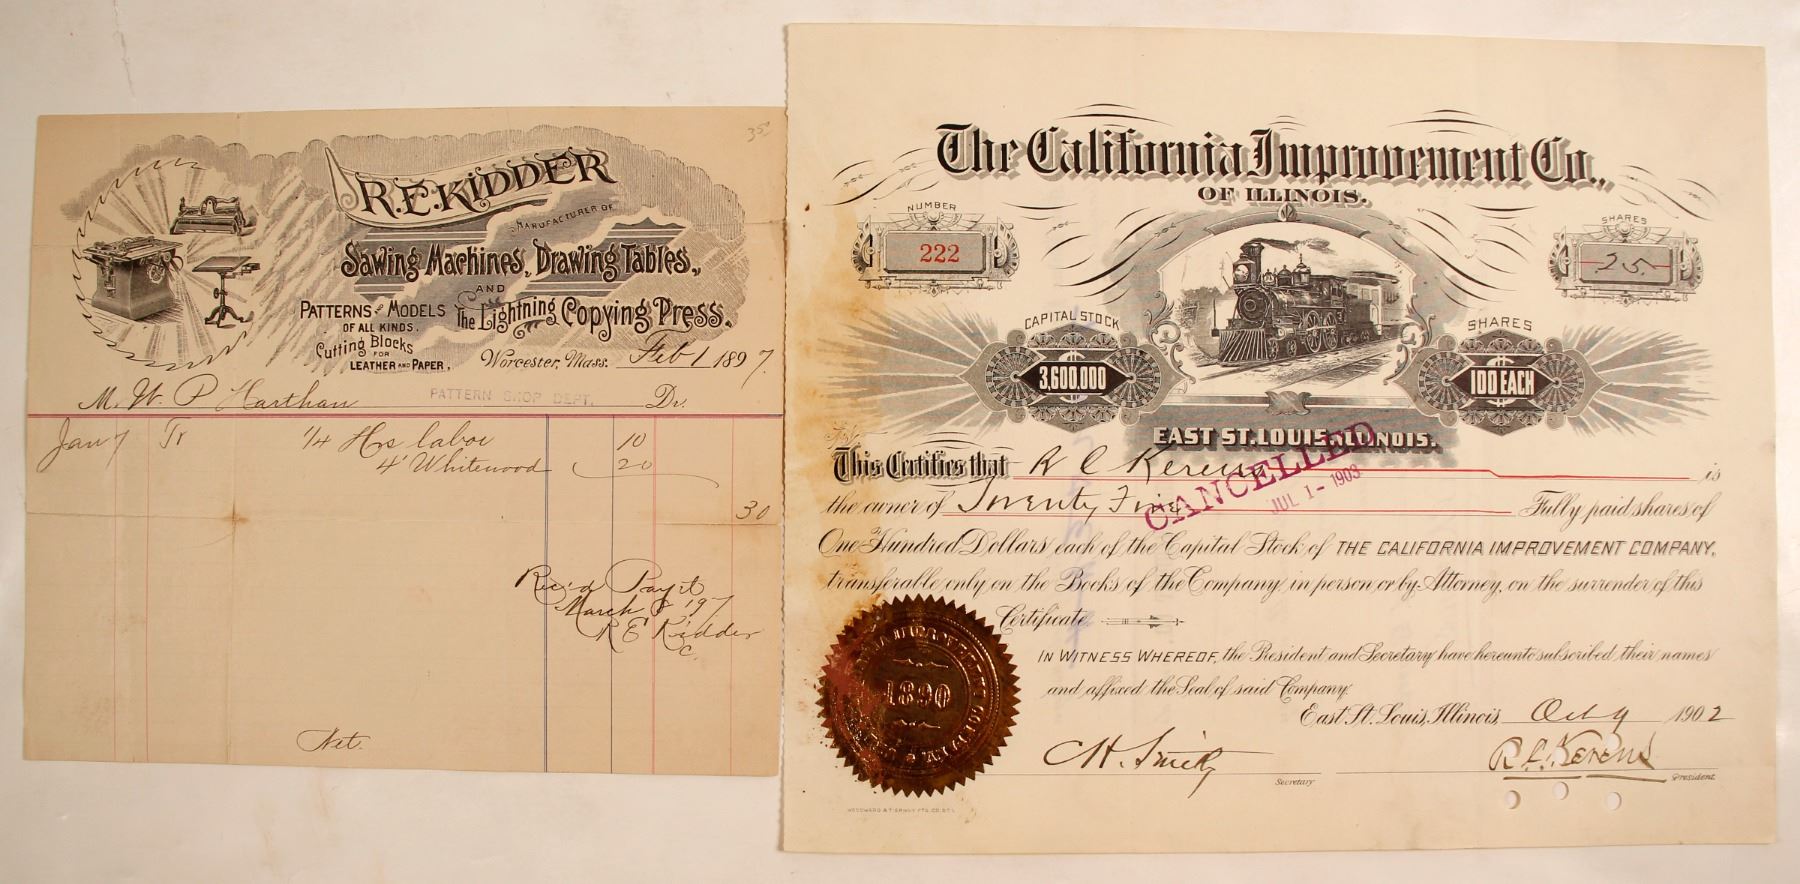 35
R.E. KIDDER
MANUFACTURER OF
Sawing Machines, Drawing Tables,
AND
PATTERNS AND MODELS
OF ALL KINDS.
The Lightning Copying Press.
Cutting Blocks
FOR
LEATHER AND PAPER,
Worcester, Mass. Feb 1 1897.
M. W. P. Harthan PATTERN SHOP DEPT. Dr.
Jan 7 Tr 1/4 Hrs labor 10
4' Whitewood 20
30
Rec'd Paym't
March
R E Kidder
C.
Net.
The California Improvement Co.,
OF ILLINOIS.
NUMBER
222
SHARES
25.
CAPITAL STOCK
3,600,000
SHARES
100 EACH
EAST ST. LOUIS, ILLINOIS.
This Certifies that R C Kerens is
the owner of Twenty Five Fully paid shares of
CANCELLED
JUL 1- 1903
One Hundred Dollars each of the Capital Stock of THE CALIFORNIA IMPROVEMENT COMPANY,
transferable only on the Books of the Company, in person or by Attorney, on the surrender of this
Certificate.
IN WITNESS WHEREOF, the President and Secretary have hereunto subscribed their names
and affixed the Seal of said Company.
East St. Louis, Illinois, Oct 9 1902
1890
Secretary
R. C. Kerens
President.
WOODWARD & TIERNAN PTG. CO. ST. L.